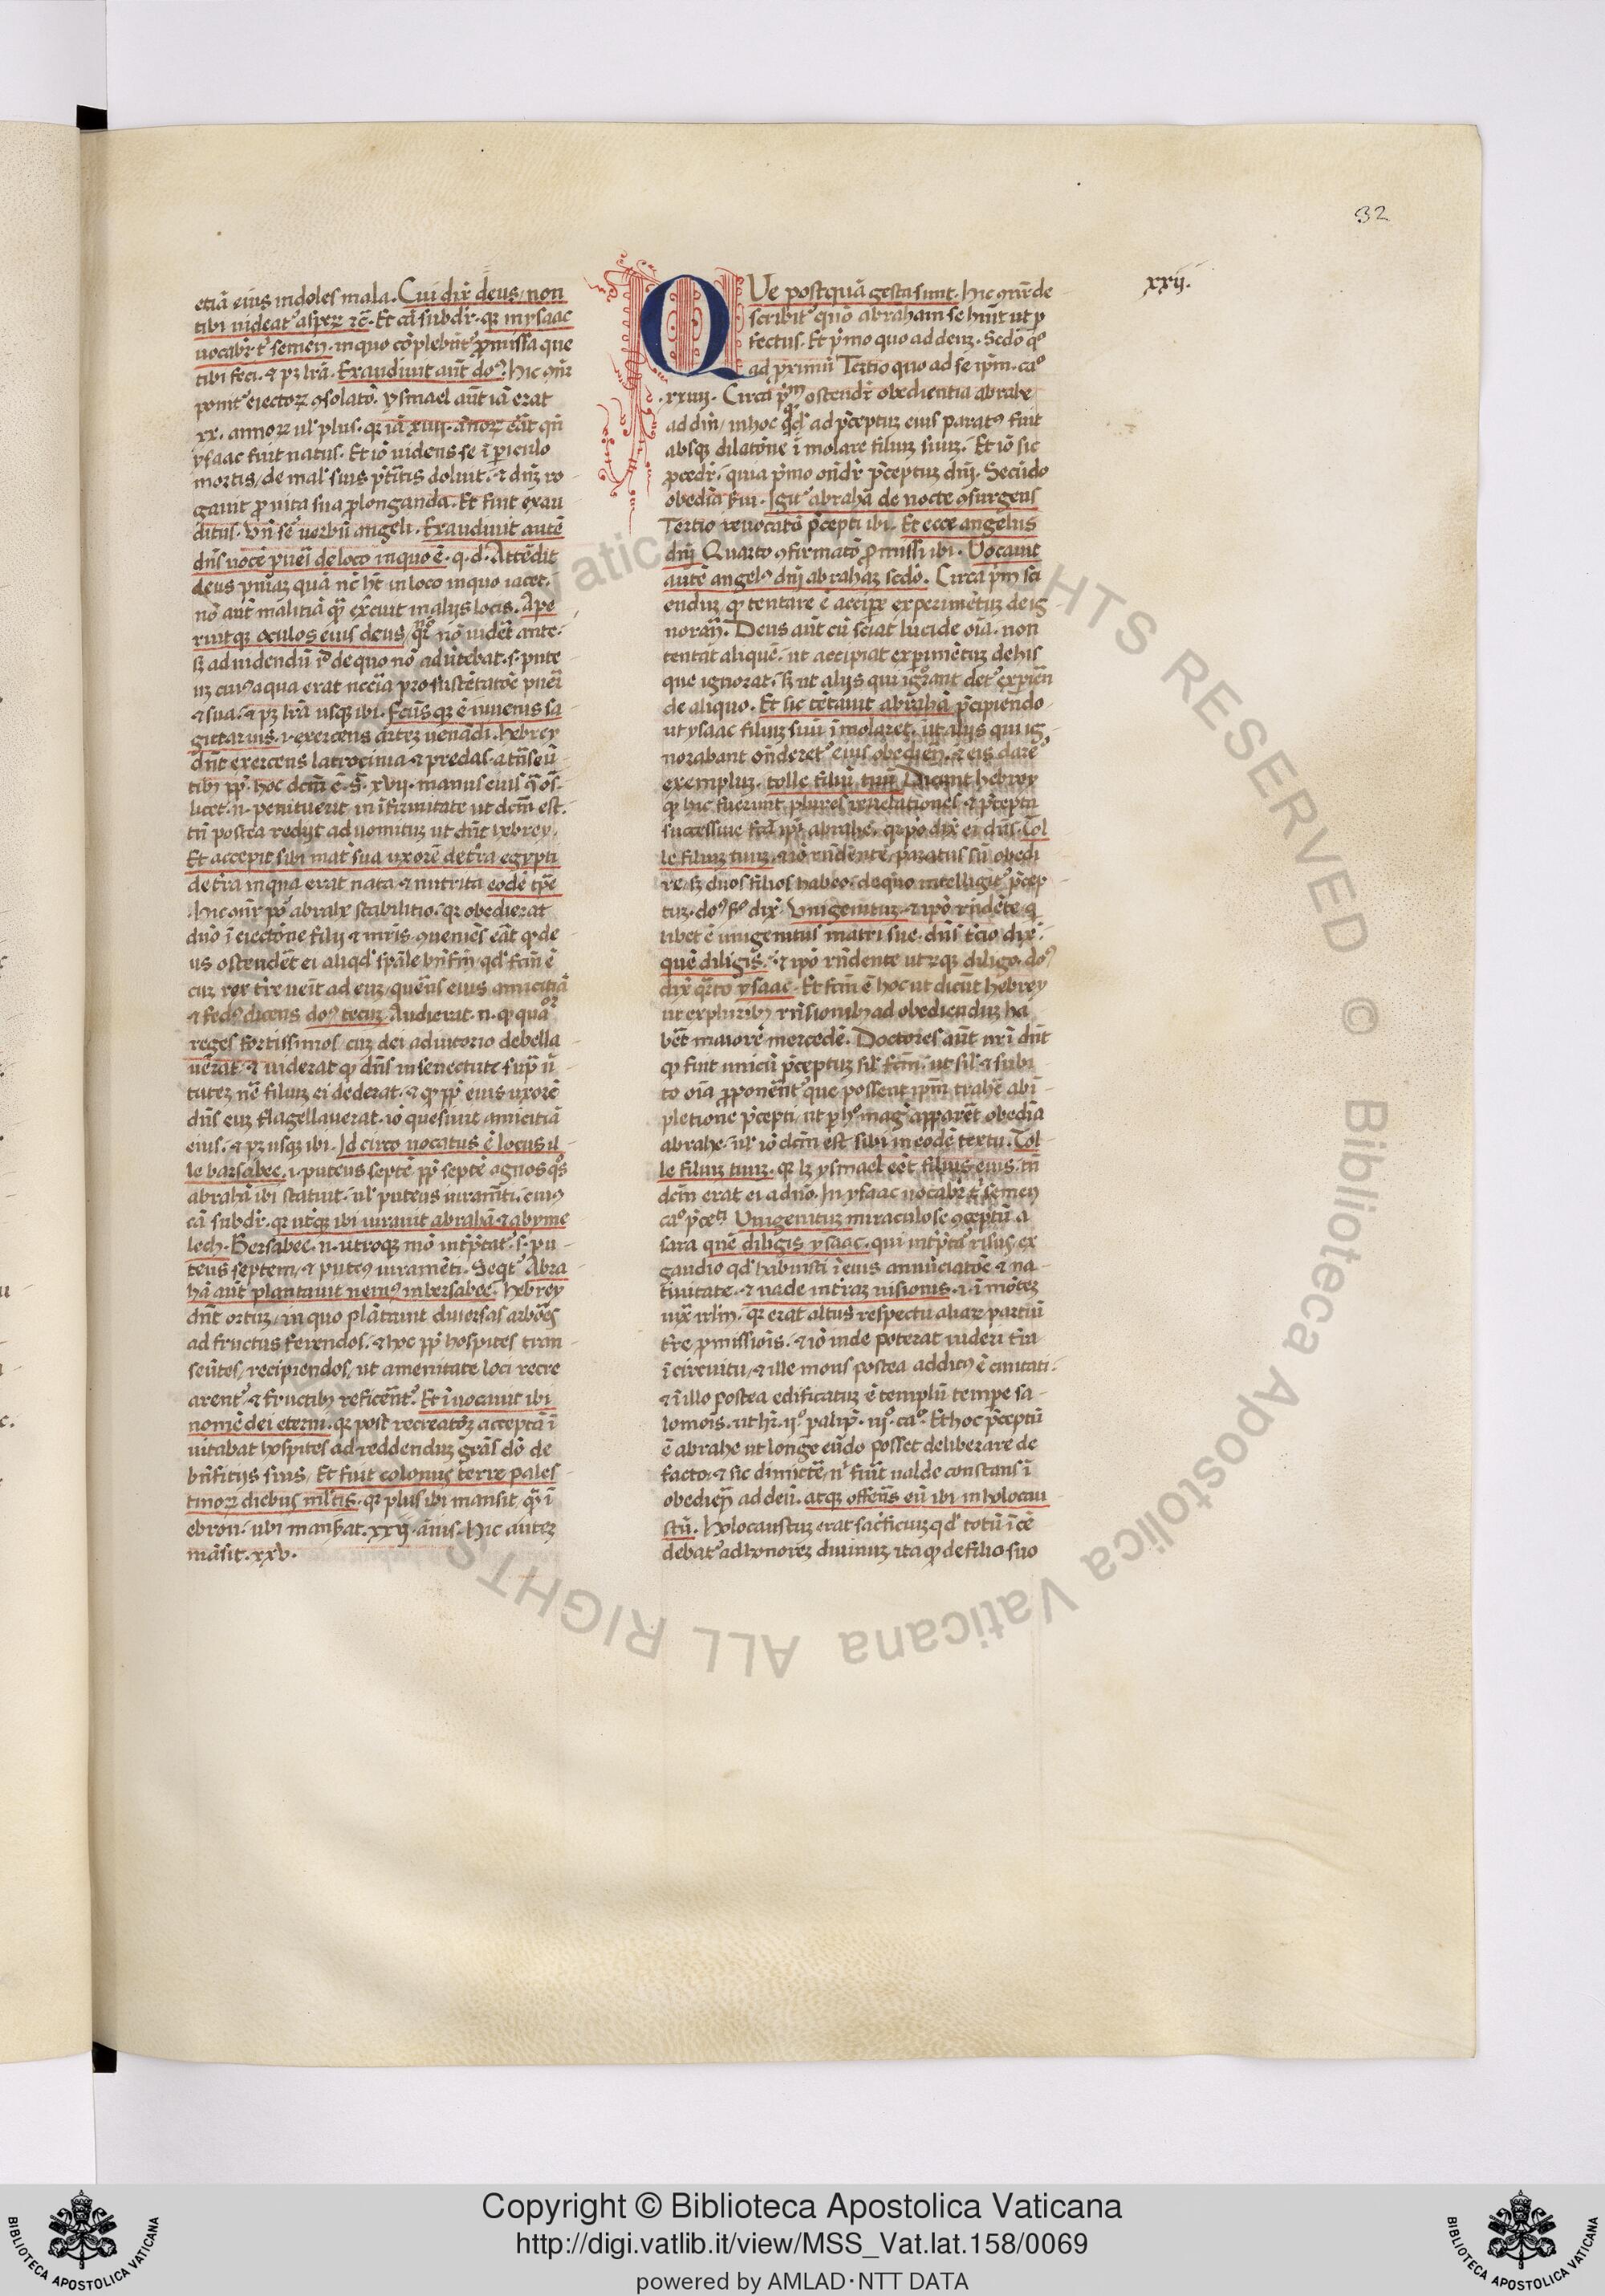 32
xxij.
etiā eius indoles mala. Cui dix̄ deus, non
tibi uideat᷒ asperꝝ ⁊c̄. Et cā subdr̄. qꝫ in ysaac
uocabr̄ t᷒ semen. in quo cōplebūt᷒ ꝓmissa que
tibi feci. ⁊ pꝫ lr̄a. Exaudiuit aūt do᷒. Hic ꝯñr
ponit᷒ eiectoꝝ ꝯsolatō. ysmael aūt iā erat
xx. annoꝝ ul᷒ plus. qꝫ iā xiiii. annoꝝ eāt qn̄
ysaac fuit natus. Et iō uidens se ī piculo
mortis, de mal᷒ suis p̄t̄itis doluit. ⁊ dn̄ꝫ ro-
gauit ꝓ uita sua ꝓlonganda. Et fuit exau
ditus. Vn̄ se᷒ uerbū angeli. Exaudiuit autē
dn̄s uocē pueī de loco in quo ē. q. d. Attēdit
deus pn̄iaꝫ quā nc̄ ht̄ in loco in quo iacet.
nō aūt malitiā quā ex̄cuit in alijs locis. Ape
ruitqꝫ oculos eius deus, qr̄ nō uidēt ante.
sꝫ ad uidendū id de quo nō aduertebat. s. pute
uꝫ cui᷒ aqua erat nccīa pro sustētatōe pueī
⁊ sua. ⁊ pꝫ lr̄a usqꝫ ibi. Fc̄usqꝫ ē iuuenis sa
gittarius. i. exercens artēꝫ uenādi. Hebrey
dn̄t exercens latrocinia ⁊ predas. a tn̄seū-
tibꝫ ꝓp̄. hoc dcm̄ ē. s̄. xvij. manus eius ꝯ oēs.
licet. n. penituerit in īfirmitate ut dcm̄ est.
tn̄ postea redijt ad uomituꝫ ut dn̄t hebrey.
Et accepit sibi mat᷒ sua uxorē de t̄ra egypti
de t̄ra in qua erat nata ⁊ nutrita eodē tp̄e
Hic ꝯñr pō abrahe stabilitio. qꝫ obedierat
dn̄o ī eiectōne filij ⁊ mr̄is. ꝯueniēs eāt qꝫ de
us ostendēt ei aliqd᷒ spāle bn̄fm̄, qd᷒ fcm̄ ē
cuꝫ rex t̄re ueīt ad euꝫ, querēs eius amicitiā
⁊ fed᷒, dicens do᷒ tecuꝫ. Audierat. n. qꝫ quāor
reges fortissimos, cuꝫ dei adiutorio debella
uerat. ⁊ uiderat qꝫ dn̄s in senectute sup̄ ū
tuteꝫ nē filiuꝫ ei dederat. ⁊ qꝫ ꝓp̄ eius uxorē
dn̄s euꝫ flagellauerat. iō quesiuit amicitiā
eius. ⁊ pꝫ usqꝫ ibi. Id circo uocatus ē locus il-
le barsabee. i. puteus septē. ꝓp̄ septē agnos q᷒s
abrahā ibi statuit. ul᷒ puteus iuramēti. cui᷒
cā subdr̄. qꝫ ut̄qꝫ ibi iurauit abrahā ⁊ abyme
lech. Bersabee. n. utroqꝫ mō int̄p̄tat᷒. s. pu-
teus septem, ⁊ pute᷒ iuramēti. Seqt᷒ Abra
hā aūt plantauit nem᷒ in bersabee. Hebrey
dn̄t ortuꝫ, in quo plātauit diuersas arbores
ad fructus ferendos. ⁊ hoc ꝓp̄ hospites tran
seūtes, recipiendos, ut amenitate loci recre
arent᷒ ⁊ fructibꝫ reficeēt᷒. Et īuocauit ibi
nomē dei eterni. qꝫ post recreatōꝫ acceptā ī
uitabat hospites ad reddenduꝫ gr̄as dō de
bn̄fitijs suis. Et fuit colonus terre pales-
tinoꝝ diebus ml᷒tis. qꝫ plus ibi mansit, quā ī
ebron. ubi mansat. xxij. ānis. Hic auteꝫ
māsit. xxv.
QVe postquā gesta sunt. Hic ꝯñr de
scribit᷒ quō abraham se hūit ut ꝑ
fectus. Et p̄mo quo ad deuꝫ. Sedō qᵒ
ad primū Tertio quo ad se ip̄m. caᵒ
.xxiij. Circa p̄m ostendr̄ obedientia abrahe
ad dm̄, in hoc qd᷒ ad p̄ceptuꝫ eius parat᷒ fuit
absqꝫ dilatōne īmolare filiuꝫ suuꝫ. Et iō sic
ꝓcedr̄. quia p̄mo ōndr̄ p̄ceptuꝫ dn̄j. Secūdo
obedīa sui. Igit᷒ abrahā de nocte ꝯsurgens
Tertio reuocatō p̄cepti ibi. Et ecce angelus
dn̄j Quarto ꝯfirmatō ꝓmissi ibi. Vocauit
autē angel᷒ dn̄j abrahaꝫ sedō. Circa p̄m sci
enduꝫ qꝫ tentare ē accipe experimētuꝫ de ig-
norāt̄. Deus aūt cū sciat lucide oīa. non
tentat aliquē. ut accipiat exp̄imētuꝫ de his
que ignorat. sꝫ ut alijs qui ignorant det᷒ exp̄ien̄
de aliquo. Et sic tētauit abrahā p̄cipiendo
ut ysaac filiuꝫ suū īmolaret. ut alijs qui ig-
norabant ōnderet᷒ eius obedien̄. ⁊ eis daret᷒
exempluꝫ. tolle filiū tuū Dicunt hebrey
qꝫ hic fuerunt plures reuelationes ⁊ p̄cepta
successiue fca ip̄i abrahe. qꝫ pō dix̄ ei dn̄s. Tol
le filiuꝫ tuuꝫ. ⁊ iō rn̄dente. paratus sū obedi
re. sꝫ duos filios habeo. de quo intelligit᷒ p̄cep-
tuꝫ. do᷒ sᵒ dix̄. Vnigenituꝫ. ⁊ ipō rn̄dēte, q
libet ē unigenitus matri sue. dn̄s t̄cio dix̄.
quē diligis. ⁊ ipō rn̄dente utrqꝫ diligo. do᷒
dix̄ q̄rto ysaac. Et fcm̄ ē hoc ut dicūt hebrey
ut ex pluribꝫ rn̄sionibꝫ ad obedienduꝫ ha
bēt maiorē mercedē. Doctores aūt nr̄i dn̄t
qꝫ fuit unicū p̄ceptuꝫ sil᷒ fcm̄. ut sil᷒ ⁊ subi
to oīa ꝓponēnt᷒ que possent ip̄m trahē ab ī-
pletione p̄cepti, ut p h᷒ mag᷒ appareēt obedīa
abrahe. ul᷒ iō dcm̄ est sibi in eodē textu. Tol-
le filiuꝫ tuuꝫ. qꝫ lꝫ ysmael eēt filius eius. tn̄
dcm̄ erat ei a dn̄o. In ysaac uocabr̄ t᷒ semen
caᵒ p̄ceti Vnigenituꝫ miraculose ꝯceptū a
sara quē diligis ysaac. qui int̄p̄ta᷒ risus, ex
gaudio qd᷒ habuisti ī eius annūciatōe ⁊ na-
tiuitate. ⁊ uade in t̄raꝫ uisionis. i. ī mōteꝫ
iux̄ irl̄m. qꝫ erat altus respectu aliaꝝ partiū
t̄re ꝓmissiōis. ⁊ iō inde poterat uideri t̄ra
ī circuitu, ⁊ ille mons postea addit᷒ ē ciuitati.
⁊ ī illo postea edificatuꝫ ē templū tempe sa-
lomōis. ut hr̄. ijᵒ palip̄. iijᵒ. caᵒ. Et hoc p̄ceptū
ē abrahe ut longe eūdo posset deliberare de
facto. ⁊ sic dimictē, nᶦ fuīt ualde constans ī
obedien̄ ad deū. atqꝫ offer̄s eū ibi in holocau
stū. Holocaustuꝫ erat sac̄ficiuꝫ qd᷒ totū īcē
debat᷒ ad honoreꝫ diuinuꝫ. ita qꝫ de filio suo
© Biblioteca Apostolica Vaticana ALL RIGHTS RESERVED
BIBLIOTECA APOSTOLICA VATICANA
Copyright © Biblioteca Apostolica Vaticana
http://digi.vatlib.it/view/MSS_Vat.lat.158/0069
powered by AMLAD·NTT DATA
BIBLIOTECA APOSTOLICA VATICANA